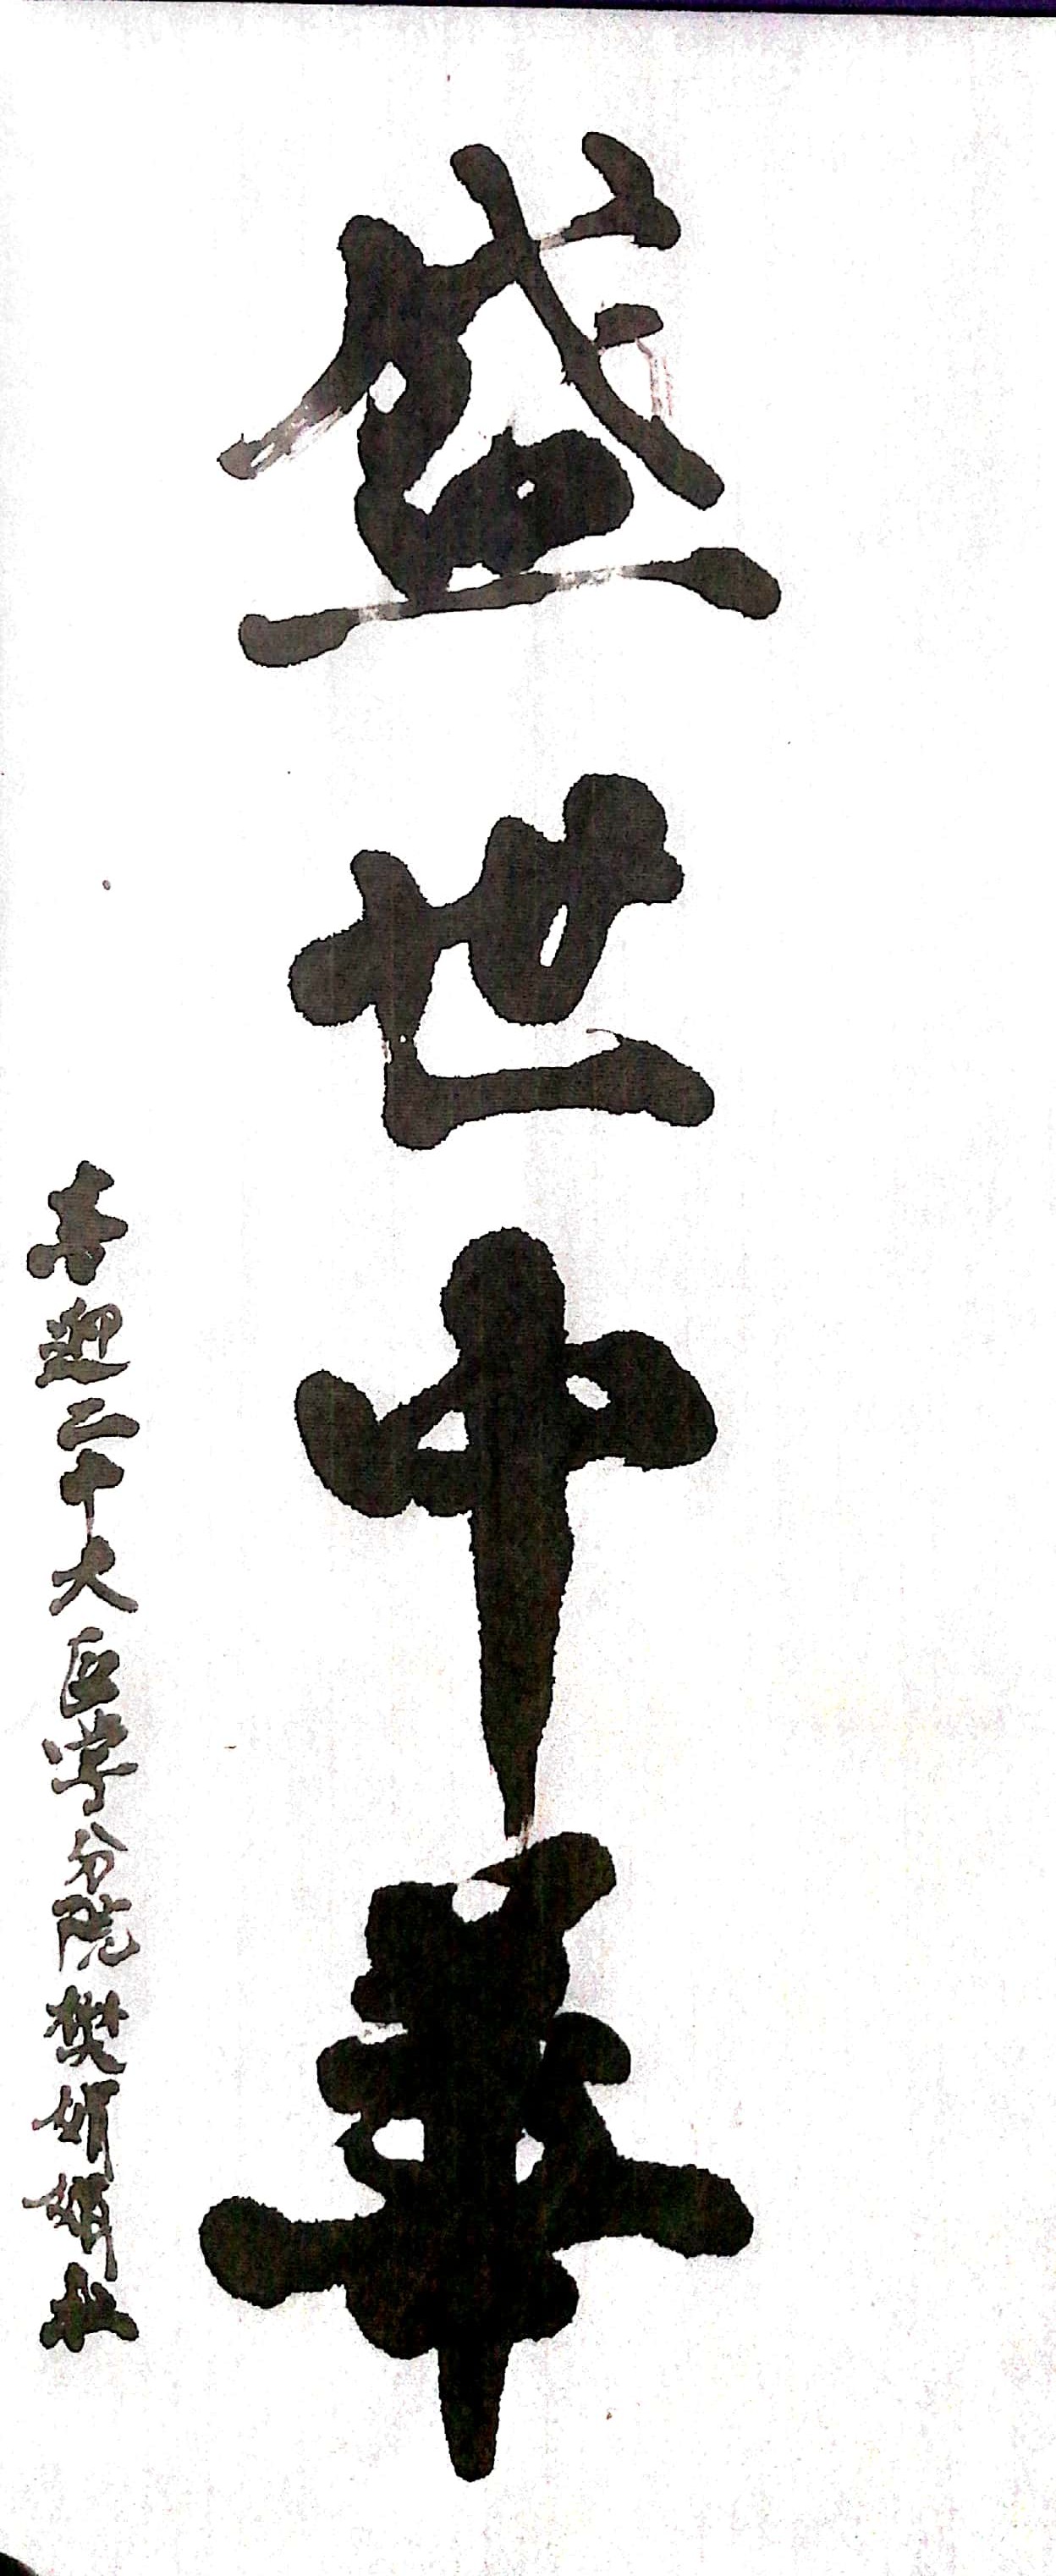 盛世中華
喜迎二十大医学分院樊娟娟书